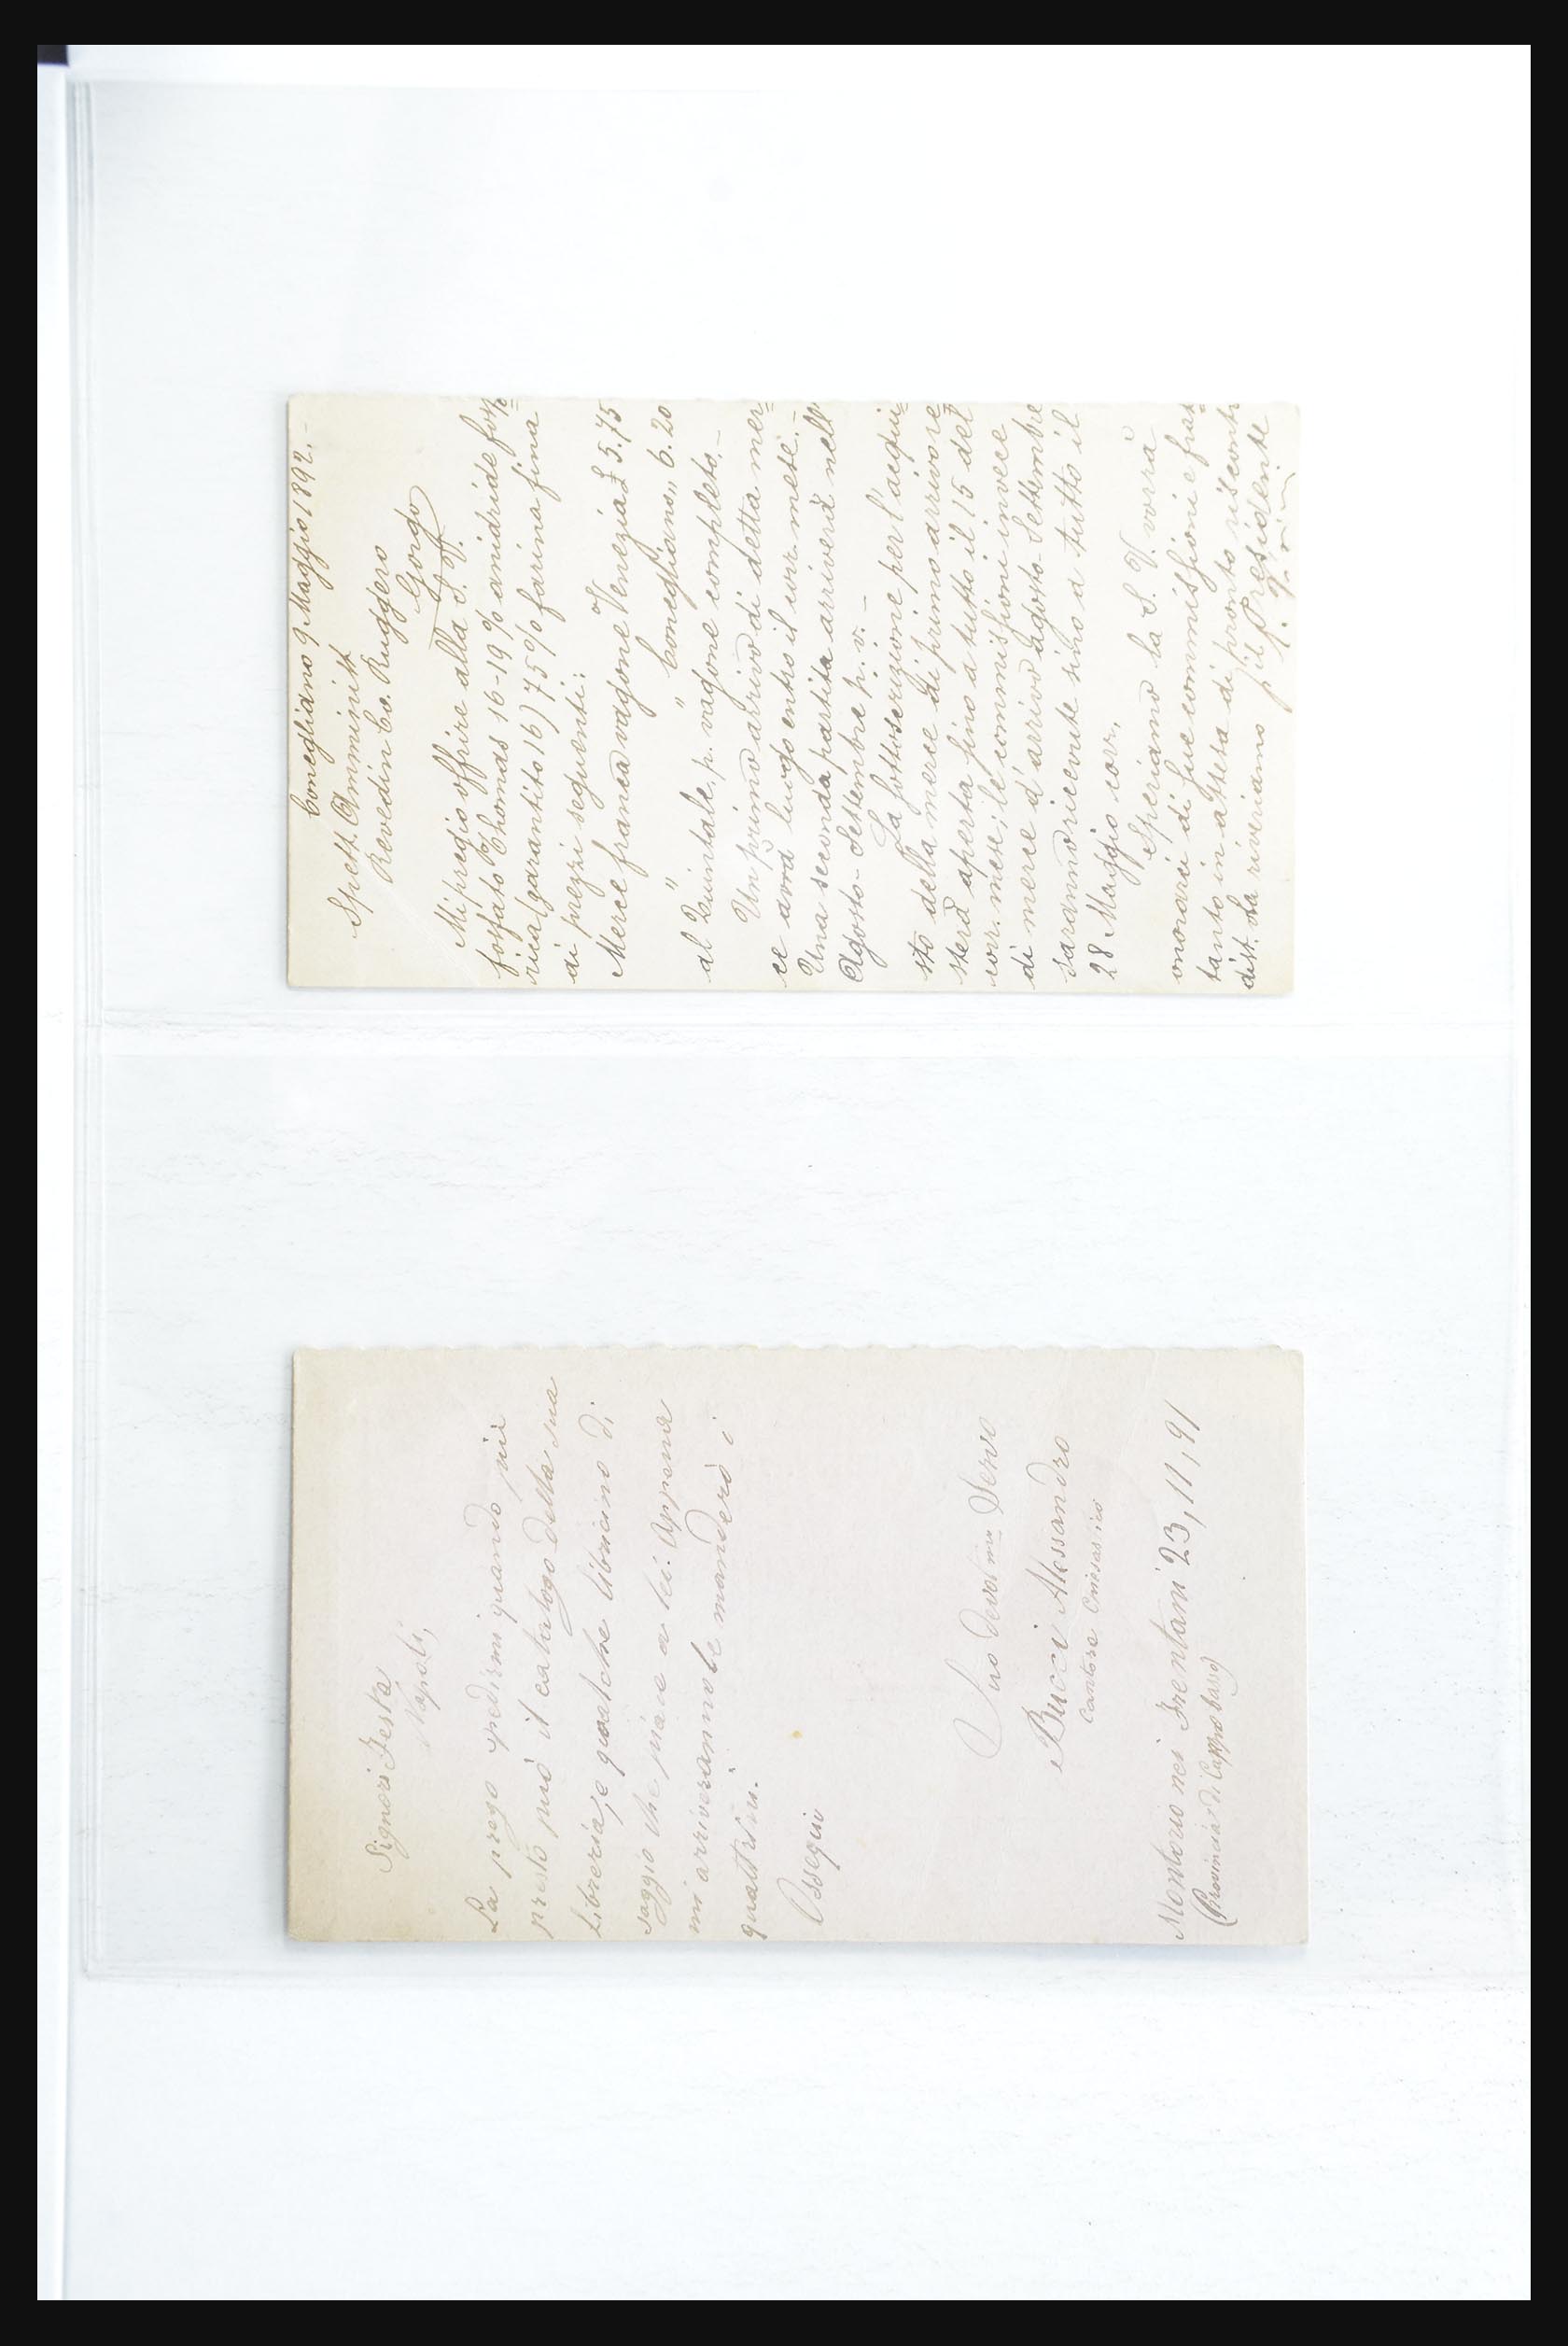 Conegliano 9 Maggio 1892.-
Spett. Amminist.
Revedin Co. Ruggero
Gorgo
Mi pregio offrire alla S. V.
fosfato Thomas 16-19% anidride fosfo=
rica (garantito 16) 75% farina fina
ai prezzi seguenti:
Merce franca vagone Venezia £ 5.75
" " Conegliano " 6.20
al Quintale, p. vagone completo.-
Un primo arrivo di detta mer=
ce avrà luogo entro il corr. mese.-
Una seconda partita arriverà nell'
Agosto-Settembre p. v.-
La sottoscrizione per l'acqui=
sto della merce di primo arrivo re
sterà aperta fino a tutto il 15 del
corr. mese; le commissioni invece
di merce d'arrivo Agosto-Settembre
saranno ricevute sino a tutto il
28 Maggio corr.
Speriamo la S. V. vorrà
onorarci di sue commissioni e frat
tanto in attesa di pronto riscontr
dist. la riveriamo
p. il Presidente
Signori Festa,
Napoli,
La prego spedirmi quando più
presto può il catalogo della sua
Libreria, e qualche libricino di
saggio che piace a lei. Appena
mi arriveranno le manderò i
quattrini.
Ossequi
Suo devotmo Servo
Bucci Alessandro
Cantore Chiesastico
Montorio nei Frentani 23, 11, 91
(Provincia di Campobasso)